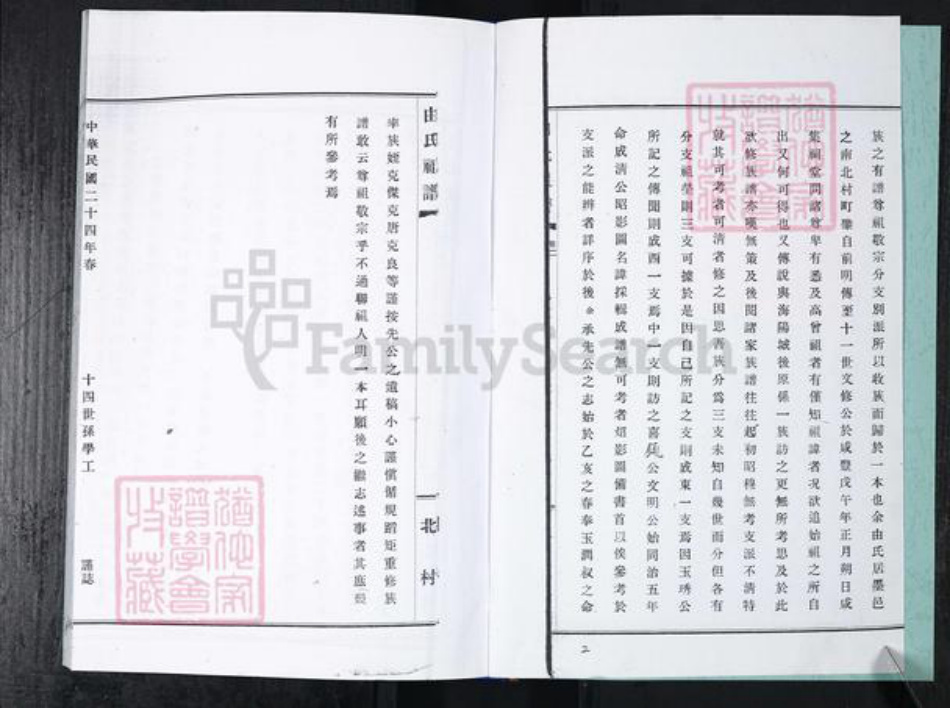 族之有譜尊祖敬宗分支別派所以收族而歸於一本也余由氏居墨邑
之南北村町鑒自前明傳至十一世文修公於咸豐戊午年正月朔日咸
集祠堂問諸尊卑有悉及高曾祖者有僅知祖諱者况欲追始祖之所自
出又何可得也又傳說與海陽城後原係一族訪之更無所考思及於此
欲修族譜亦嘆無策及後閱諸家族譜往往起初昭穆無考支派不清特
就其可考者可清者修之因思吾族分爲三支未知自幾世而分但各有
分支祖塋則三支可據於是因自己所記之支則或東一支焉因玉琇公
所記之傳聞則或西一支焉中一支則訪之喜 公文明公始同治五年
命成清公昭影圖名諱採輯成譜無可考者炤影圖備書首以俟參考於
支派之能辨者詳序於後 承先公之志始於乙亥之春奉玉潤叔之命
2
由氏祖譜
北村
率族姪克傑克唐克良等謹按先公之遺稿小心謹愼循規蹈矩重修族
譜敢云尊祖敬宗乎不過聊祖人明一本耳願後之繼志述事者其庶幾
有所參考焉
中華民國二十四年春 十四世孫學工 謹誌
猶他家譜學會收藏
猶他家譜學會收藏
FamilySearch